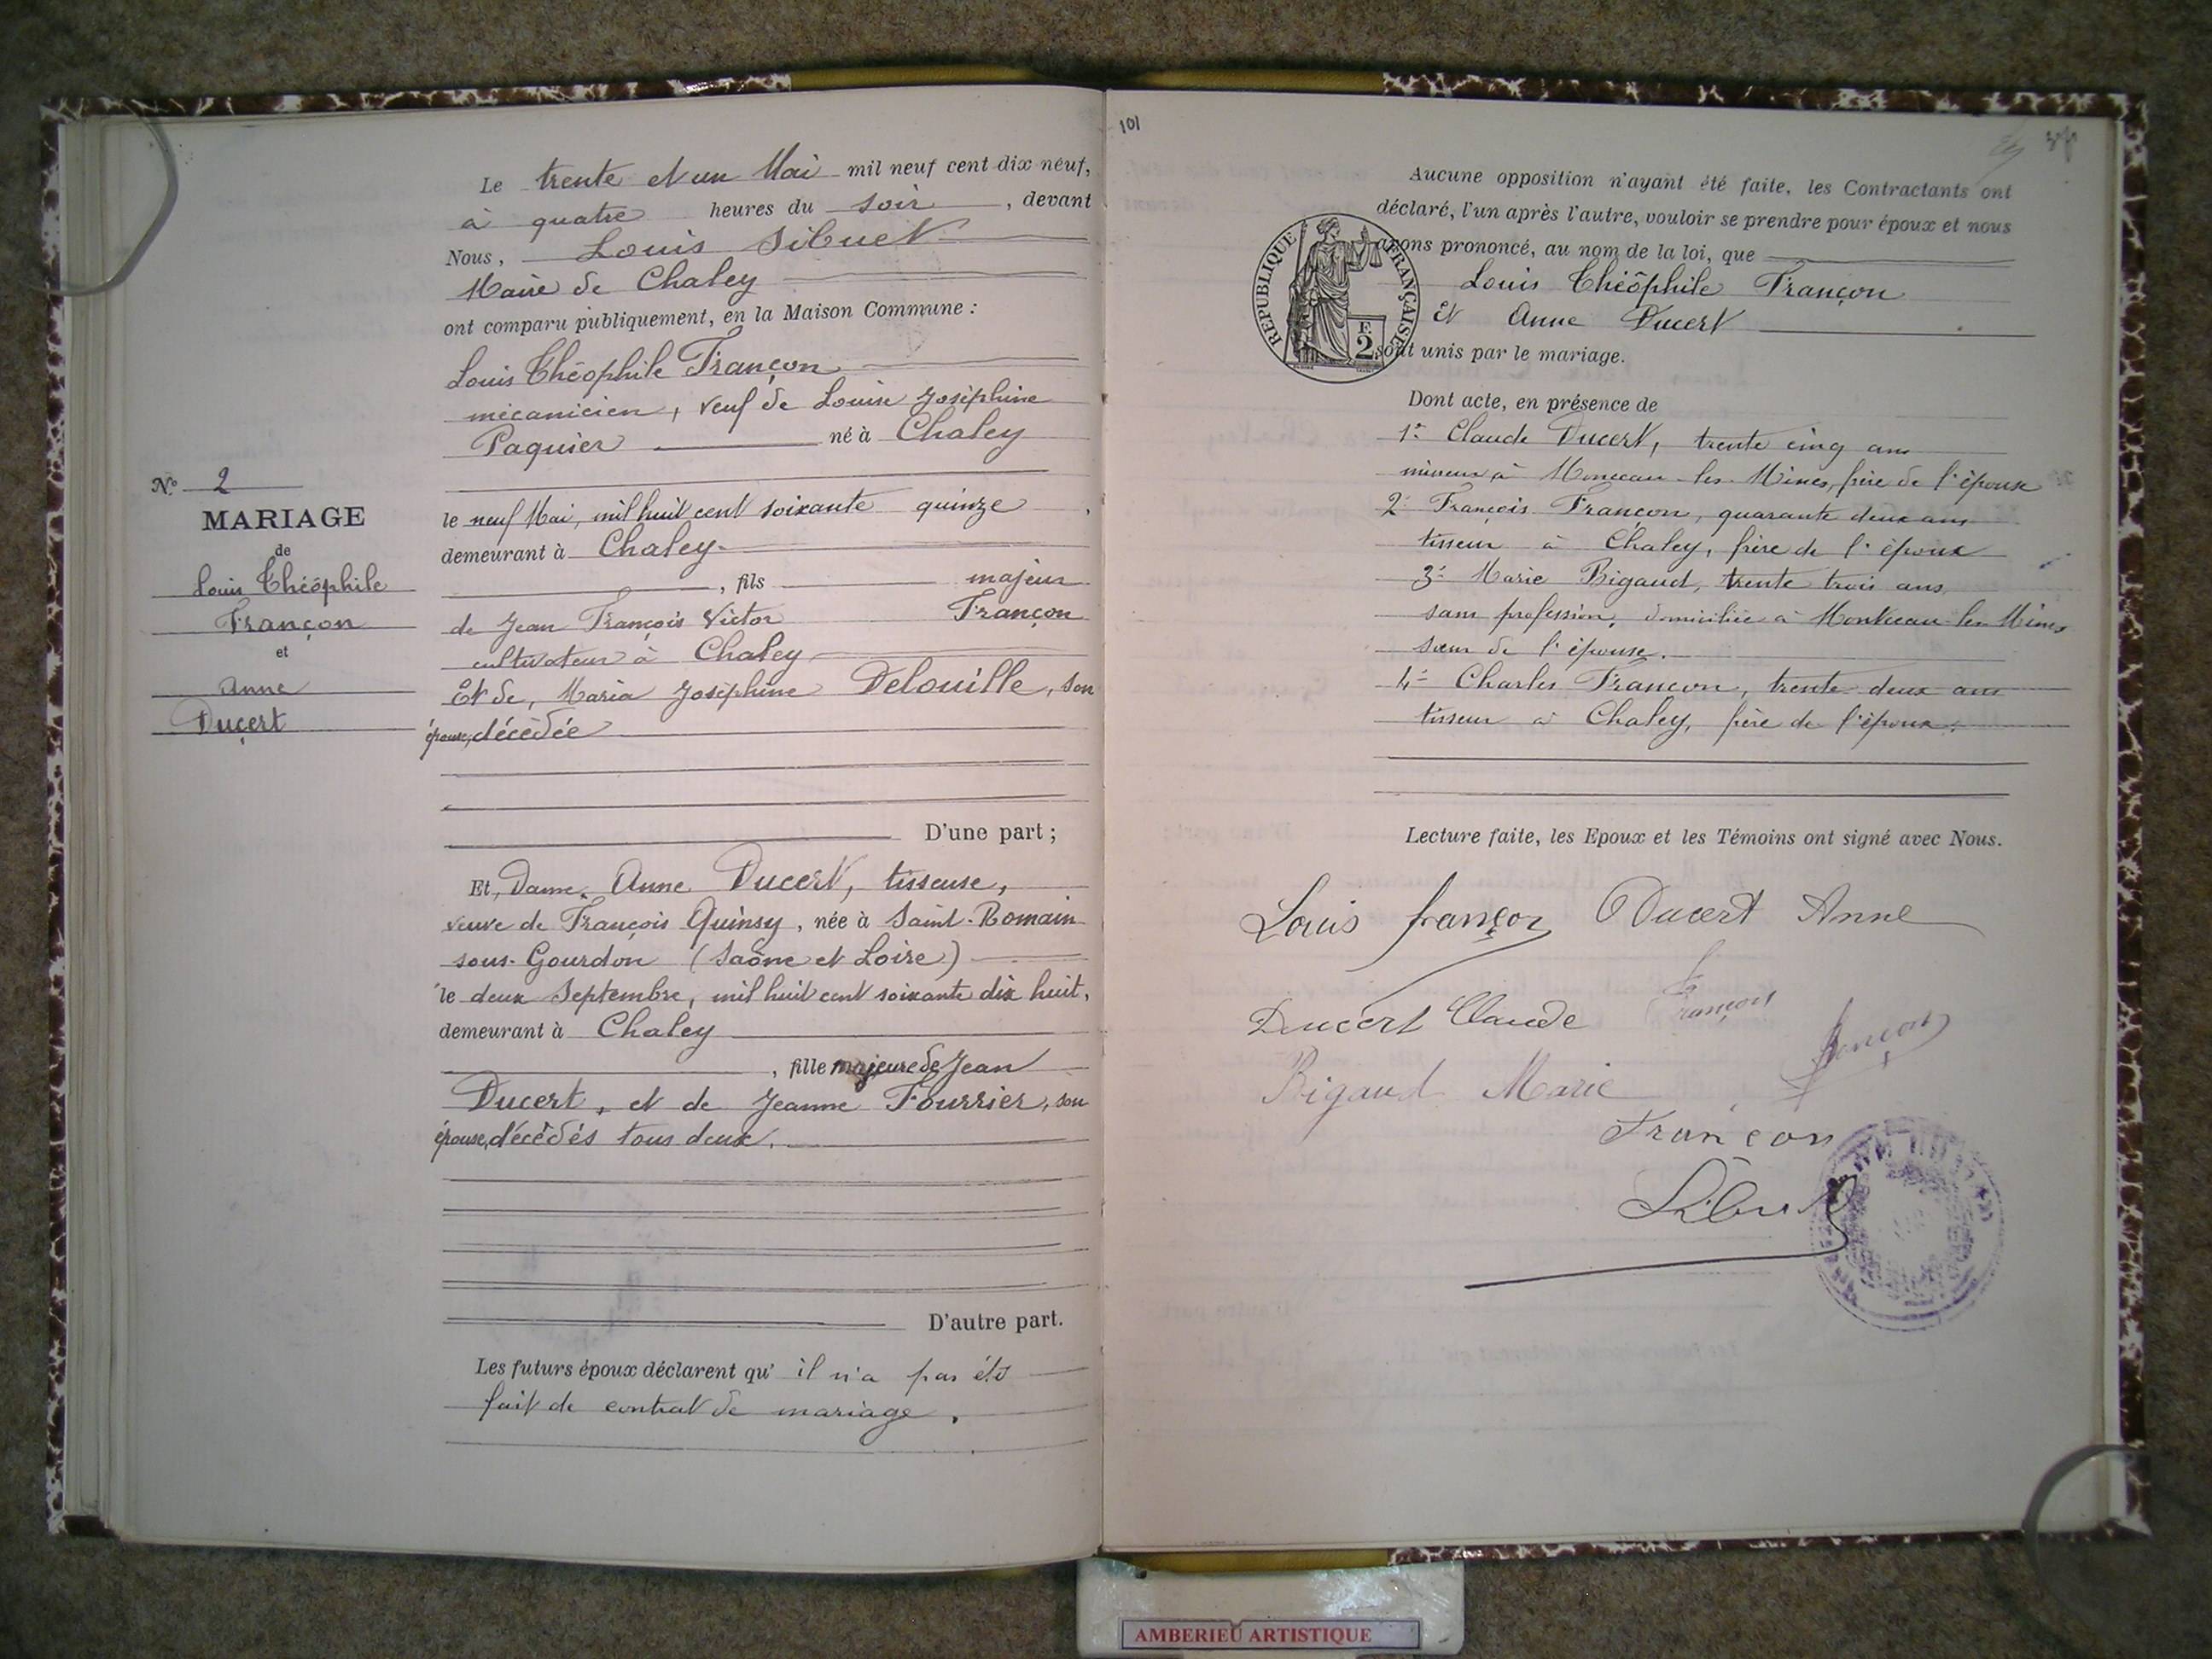 N° 2
MARIAGE
de
Louis Théophile
Françon
et
Anne
Ducert
Le trente et un Mai mil neuf cent dix-neuf,
à quatre heures du soir, devant
Nous, Louis Sibuet
Maire de Chaley
ont comparu publiquement, en la Maison Commune :
Louis Théophile Françon
mécanicien, veuf de Louise Joséphine
Paquier né à Chaley
le neuf Mai, mil huit cent soixante quinze,
demeurant à Chaley
, fils majeur
de Jean François Victor Françon
cultivateur à Chaley
Et de, Maria Joséphine Delouille, son
épouse, décédée
D'une part ;
Et, Dame, Anne Ducert, tisseuse,
veuve de François Quinsy, née à Saint-Romain
sous-Gourdon (Saône et Loire)
le deux Septembre, mil huit cent soixante dix huit,
demeurant à Chaley
, fille majeure de Jean
Ducert, et de Jeanne Fourrier, son
épouse, décédés tous deux.
D'autre part.
Les futurs époux déclarent qu' il n'a pas été
fait de contrat de mariage.
101
Aucune opposition n'ayant été faite, les Contractants ont
déclaré, l'un après l'autre, vouloir se prendre pour époux et nous
avons prononcé, au nom de la loi, que
Louis Théophile Françon
et Anne Ducert
sont unis par le mariage.
RÉPUBLIQUE FRANÇAISE
F.
2
Dont acte, en présence de
1° Claude Ducert, trente cinq ans
mineur à Monceau-les-Mines, frère de l'épouse
2° François Françon, quarante deux ans
tisseur à Chaley, frère de l'époux
3° Marie Bigaud, trente trois ans,
sans profession, domiciliée à Montceau-les Mines
sœur de l'épouse.
4° Charles Françon, trente deux ans
tisseur à Chaley, frère de l'époux.
Lecture faite, les Epoux et les Témoins ont signé avec Nous.
Louis françon Ducert Anne
Ducert Claude
Françon
Bigaud Marie
françon
Françon
Sibuet
AMBERIEU ARTISTIQUE